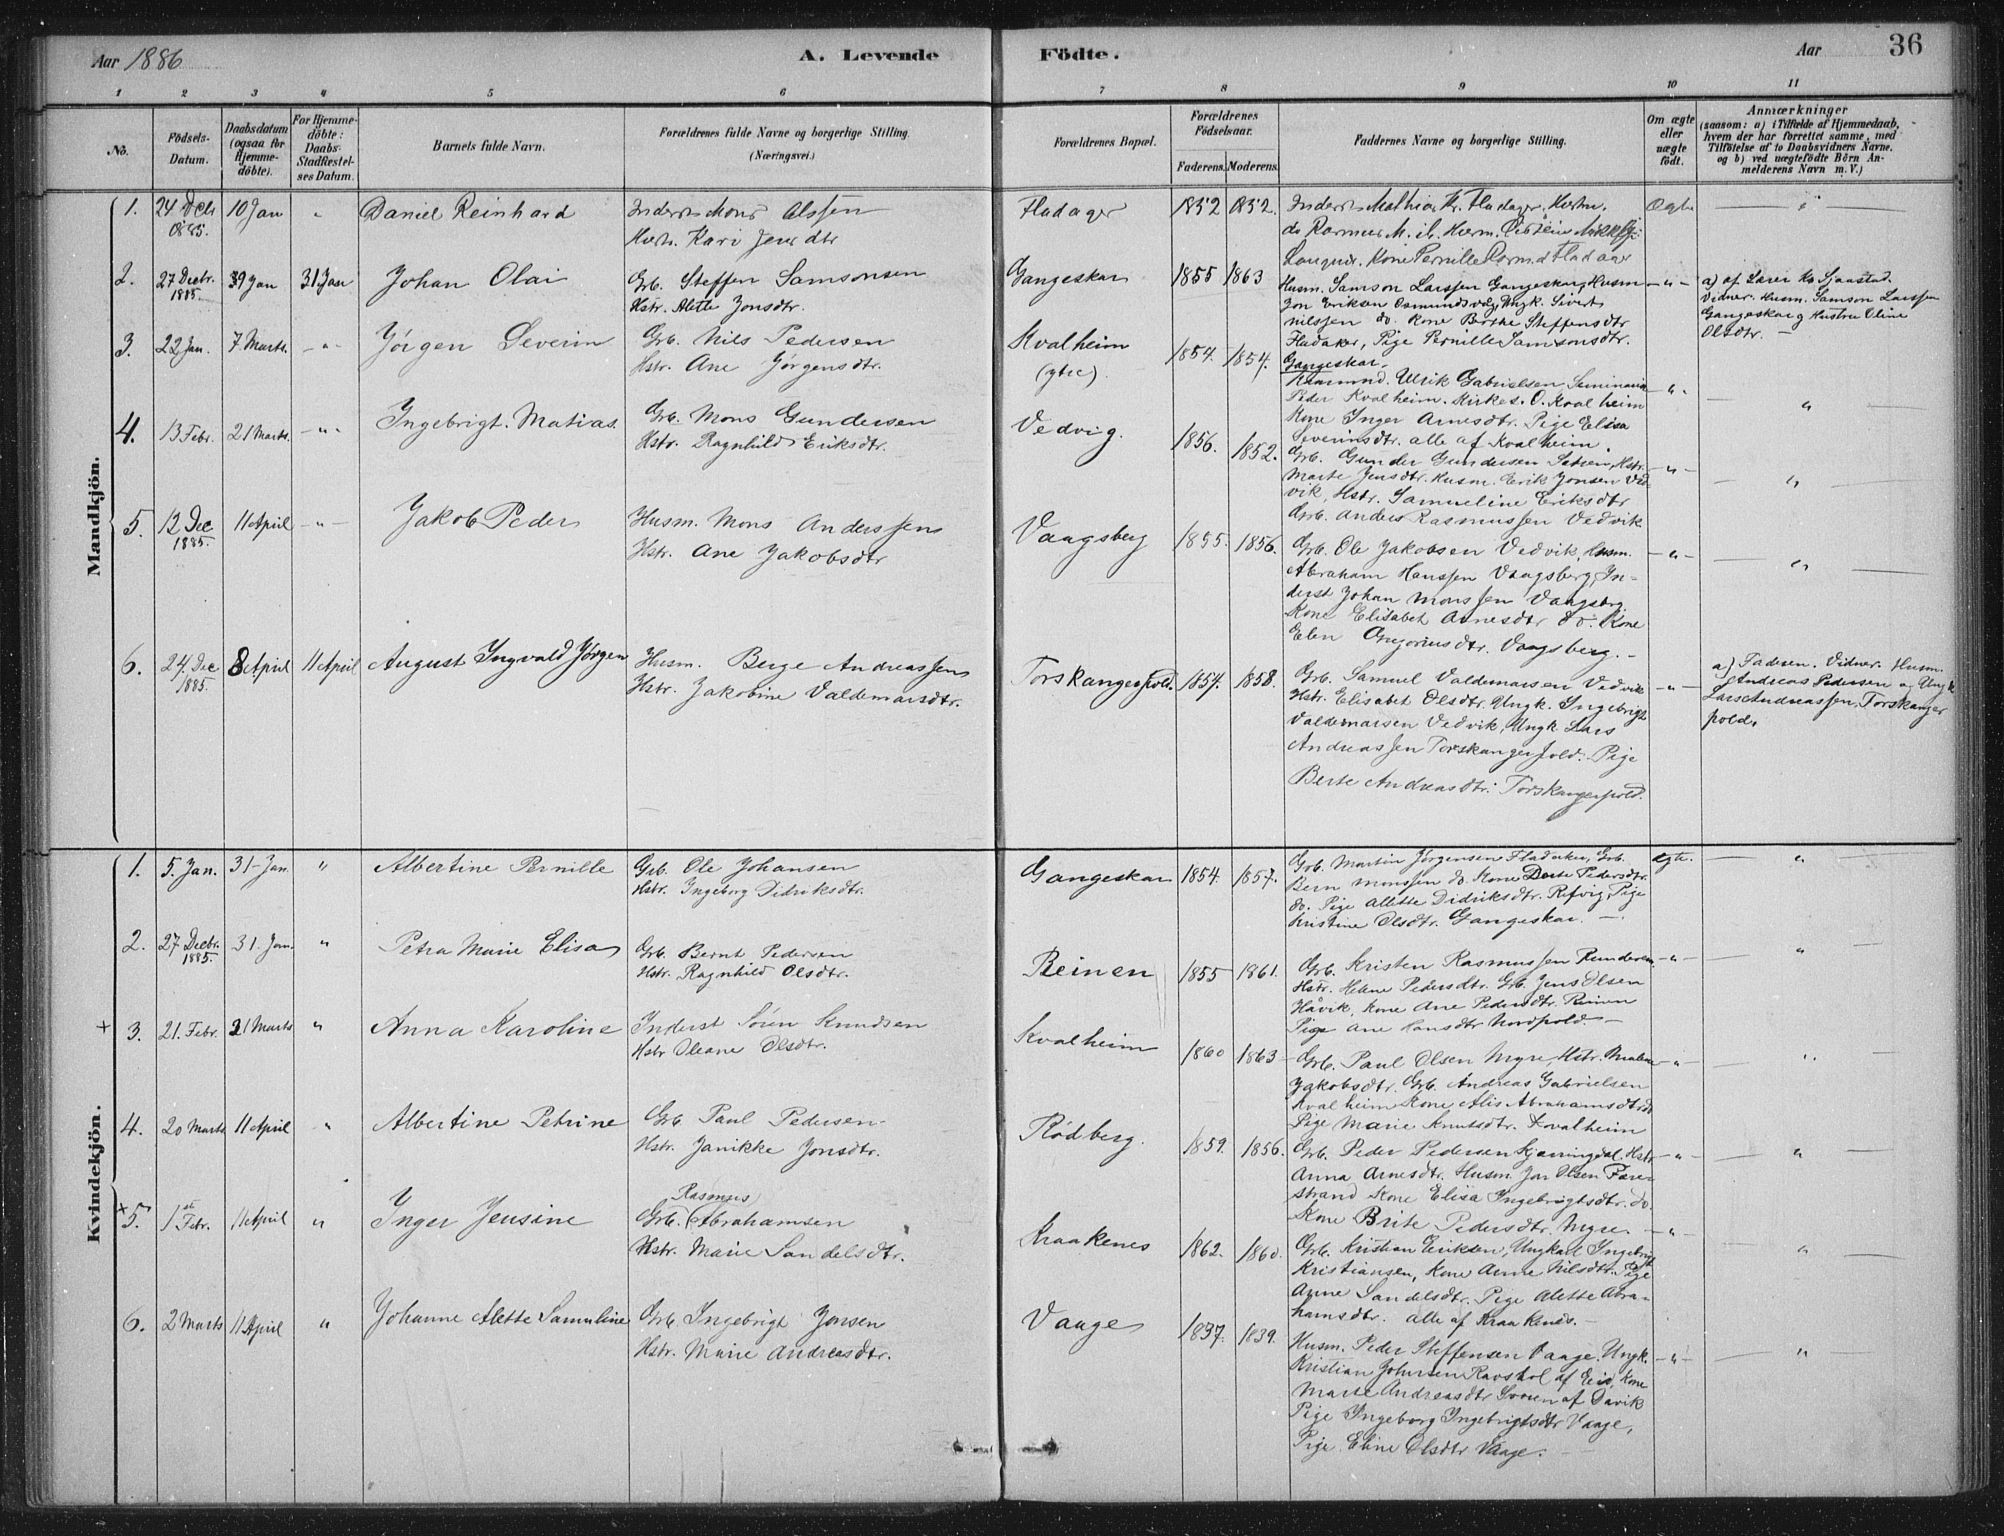 Aar 1886 A. Levende Födte. Aar 36
1 2 3 4 5 6 7 8 9 10 11
No.
Födsels-Datum.
Daabsdatum (ogsaa for Hjemme-döbte).
For Hjemme-döbte: Daabs-Stadfæstel-ses Datum.
Barnets fulde Navn.
Forældrenes fulde Navne og borgerlige Stilling. (Næringsvei.)
Forældrenes Bopæl.
Forældrenes Födselsaar.
Faderens. Moderens.
Faddernes Navne og borgerlige Stilling.
Om ægte eller uægte födt.
Anmærkninger
(saasom: a) i Tilfælde af Hjemmedaab,
hvem der har forrettet samme, med
Tilföielse af to Daabsvidners Navne.
og b) ved uægtefödte Börn An-
melderens Navn m. V.)
Mandkjön.
1. 24 Decbr 1885. 10 Jan " Daniel Reinhard
Inderst Mons Olssen
Hustr. Kari Jensdtr
Fladager 1852 1852. Ægte "
Inderst Mathias Kr. Fladager, Husm.
2. 27 Decbr. 1885. 29 Jan 31 Jan Johan Olai
Grb. Steffen Samsonsen
Hstr. Alette Jonsdtr.
Gangeskar 1855 1863 -"-
Husm. Samson Larssen Gangeskar, Husm
Jon Eriksen Osmundsvåg, Ungk. Sivert
Nilssen do. Kone Berthe Steffensdtr
Fladaker, Pige Pernille Samsonsdtr.
Gangeskar.
a) af Lærer Ks Sjaastad.
Vidner. Husm. Samson Larssen
Gangeskar og Hustru Oline
Olsdtr. -
3. 22 Jan. 7 Marts. -"- Jørgen Severin
Grb. Nils Pedersen
Hstr. Ane Jørgensdtr.
Kvalheim (ytre). 1854. 1854. -"- "
Ulrik Gabrielsen, Seminarist
Peder Kvalheim. Kirkes. O. Kvalheim
Kone Inger Arnesdtr. Pige Elisa
Severinsdtr. alle af Kvalheim.
4. 13 Febr. 21 Marts. -"- Ingebrigt Matias.
Grb. Mons Gundersen
Hstr. Ragnhild Eriksdtr.
Vedvig. 1856. 1852. -"- "
Grb. Gunder Gundersen Hstr.
Marte Jensdtr. Husm. Erik Jonsen Ved-
vik, Hstr. Samueline Eriksdtr
Grb. Anders Rasmussen Vedvik
5. 12 Dec 1885. 11 April -"- Jakob Peder
Husm. Mons Anderssen
Hstr. Ane Jakobsdtr
Vaagsberg 1855. 1856. -"- "
Grb. Ole Jakobsen Vedvik, Husm.
Abraham Hanssen Vaagsberg, In-
derst Johan Monssen Vaagsberg
Kone Elisabet Arnesdtr do. Kone
Elen Gregoriusdtr. Vaagsberg. -
6. 24 Dec 1885. 8 April 11 April August Ingvald Jørgen
Husm. Berge Andreassen
Hstr. Jakobine Valdemarsdtr.
Torskangerpold. 1854. 1858. -"-
Grb. Samuel Valdemarsen Vedvik
Hstr. Elisabet Olsdtr. Ungk. Ingebrigt
Valdemarsen Vedvik, Ungk Lars
Andreassen Torskangerpold. Pige
Berte Andreasdtr. Torskangerpold.
a) Faderen. Vidner. Husm.
Andreas Pedersen og Ungk
Lars Andreassen, Torskanger
pold.
Kvindekjön.
1. 5. Jan. 31-Jan. " Albertine Pernille
Grb. Ole Johansen
Hstr. Ingeborg Didriksdtr.
Gangeskar 1854. 1857. ægte. "
Grb. Martin Jørgensen Fladaker, Grb.
Bern Monssen do. Kone Dorte Pedersdtr
do. Pige Alette Didriksdtr. Refvig, Pige
Kristine Olsdtr. Gangeskar. -
2. 27 Decbr. 1885. 31. Jan. " Petra Marie Elisa
Grb. Bernt Pedersen
Hstr. Ragnhild Olsdtr.
Reinen 1855 1861. -"- "
Grb. Kristen Rasmussen Runderein
Hstr. Helene Pedersdtr. Grb. Jens Olsen
Håvik, Kone Ane Pedersdtr. Reinen
Pige Ane Hansdtr Nordpold. -
+ 3. 21. Febr. 21 Marts " Anna Karoline
Inderst Sören Knudsen
Hstr Oleane Olsdtr.
Kvalheim 1860 1863 -"- "
Grb. Paul Olsen Myre, Hstr. Malene
Jakobsdtr. Grb. Andreas Gabrielsen
Kvalheim Kone Alis Abrahamsdtr do
Pige Marie Knutsdtr. Kvalheim
4. 20 Marts 11 April " Albertine Petrine
Grb. Paul Pedersen
Hstr. Janikke Jonsdtr.
Rødberg. 1859. 1856. -"- "
Grb. Peder Pedersen Hstr
Anna Arnesdtr. Husm. Jon Olsen Fore-
strand Kone Elisa Ingebrigtsdtr. do.
Kone Brite Pedersdtr. Myre. -
+ 5. 1st Febr. 11 April " Inger Jensine
Grb. Rasmus Abrahamsen
Hstr. Marie Sandelsdtr.
Kraakenes 1862. 1860. -"- "
Grb. Kristian Eriksen, Ungkarl Ingebrigt
Kristiansen, Kone Anne Nilsdtr. Pige
Anne Sandelsdtr. Pige Alette Abra-
hamsdtr. alle af Kraakenes. -
6. 2 Marts 11 April " Johanne Alette Samuline
Grb. Ingebrigt Jonsen
Hstr. Marie Andreasdtr.
Vaage 1837. 1839. -"- "
Husm. Peder Steffensen Vaage. Ungk.
Kristian Johnsen af Eid, Kone
Marte Andreasdtr af Davik
Pige Ingeborg Ingebrigtsdtr Vaage,
Pige. Eline Olsdtr Vaage. -